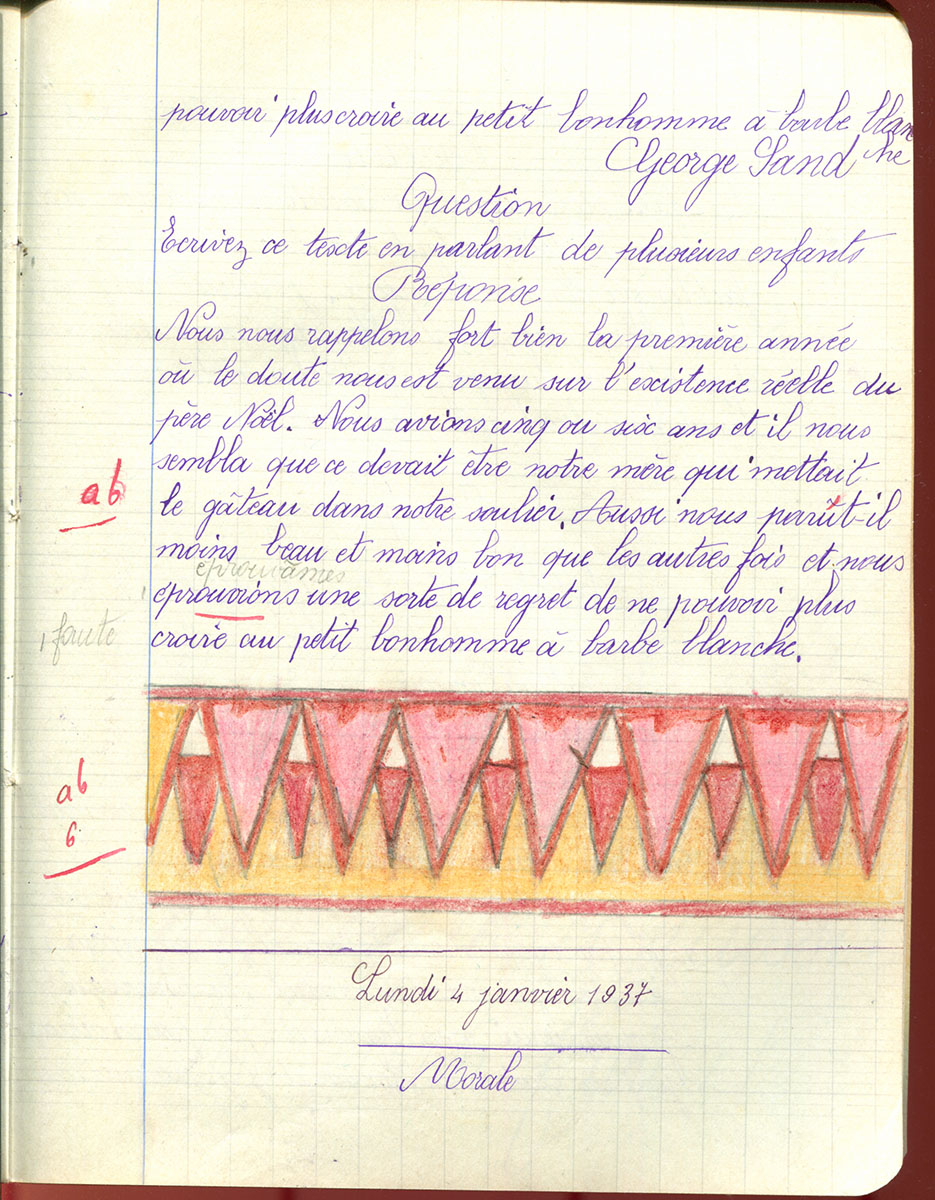 pouvoir plus croire au petit bonhomme à barbe blan
che
George Sand
Question
Ecrivez ce texte en parlant de plusieurs enfants
Réponse
Nous nous rappelons fort bien la première année
où le doute nous est venu sur l'existence réelle du
père Noël. Nous avions cinq ou six ans et il nous
sembla que ce devait être notre mère qui mettait
ab
le gâteau dans notre soulier. Aussi nous parût-il
moins beau et moins bon que les autres fois et nous
éprouvâmes
éprouvions une sorte de regret de ne pouvoir plus
1 faute
croire au petit bonhomme à barbe blanche.
ab
6
Lundi 4 janvier 1937
Morale